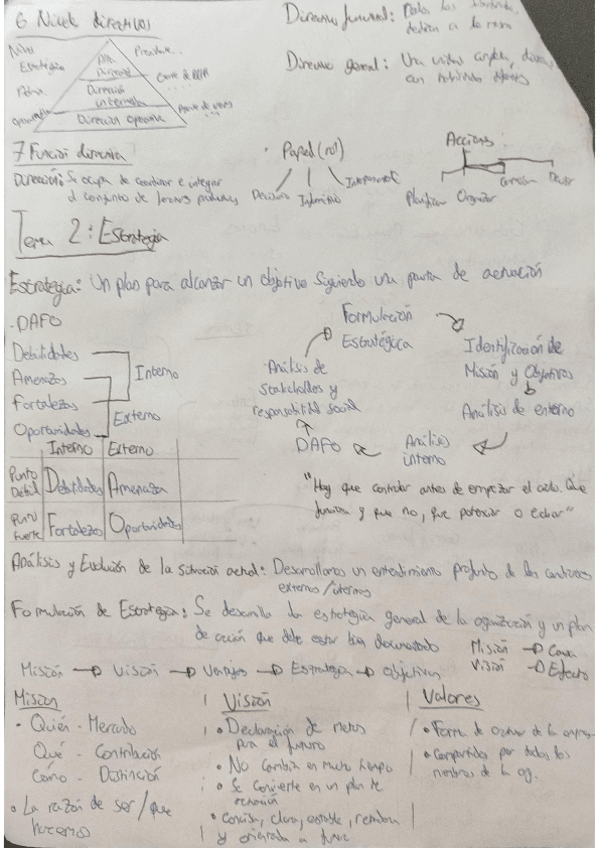 6 Nivel directivos
Nivel
Estratégico
Alta
Dirección
Presidente...
Dirección
intermedia
Dirección Operativa
Director funcional:
Director general: Una visión amplia,
7 Función directiva
Dirección: Se ocupa de coordinar e integrar
el conjunto de
· Papel (rol)
Decisorio Informativo Interpersonal
Acciones
Planificar Organizar
Tema 2: Estrategia
Estrategia: Un plan para alcanzar un objetivo siguiendo una pauta de actuación
- DAFO
Debilidades
Amenazas
Fortalezas
Oportunidades
Interno
Externo
Interno Externo
Punto Debil Debilidades Amenaza
Punto fuerte Fortalezas Oportunidades
Formulación
Estratégica
Identificación de
Misión y Objetivos
Análisis de entorno
Análisis
interno
DAFO
Análisis de
Stakeholders y
responsabilidad social
"Hay que controlar antes de empezar el ciclo. Que
funciona y que no, que potenciar o echar"
Análisis y Evolución de la situación actual: Desarrollamos un entendimiento profundo de las
externas/internas
Formulación de Estrategia: Se desarrolla la estrategia general de la organización y un plan
de acción que debe estar bien documentado
Misión → Causa
Visión → Efecto
Misión → Visión → → Estrategia → objetivos
Misión
• Quién - Mercado
Qué - Contribución
Cómo - Distinción
• La razón de ser / que
hacemos
Visión
• Declaración de metas
para el futuro
• No cambia en mucho tiempo
• Se convierte en un plan de
actuación
• Concisa, clara, estable,
y
Valores
• Forma de actuar de la empresa
• Compartidos por todos los
miembros de la org.